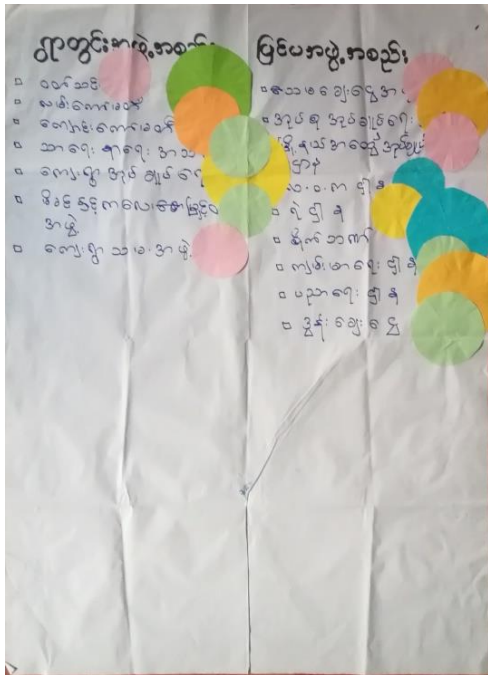 ရွာတွင်းအဖွဲ့အစည်း
ဝတ်သင်
လမ်းကော်မတီ
ကျောင်းကော်မတီ
သာရေး နာရေး အသ
ကျေးရွာ အုပ်ချုပ်ရေ
မိခင်နှင့်ကလေးစောင့်ရှောက်
အဖွဲ့
ကျေးရွာ သမ အဖွဲ့
ပြင်ပအဖွဲ့အစည်း
သမချေးငွေအ
အုပ်စု အုပ်ချုပ်ရေး
မြို့နယ်အထွေအုပ်ချုပ်
ဌာန
ဌာန
ရဲဌာန
စိုက်ဘဏ်
ကျမ်းမာရေးဌာန
ပညာရေးဌာန
ချေးငွေ